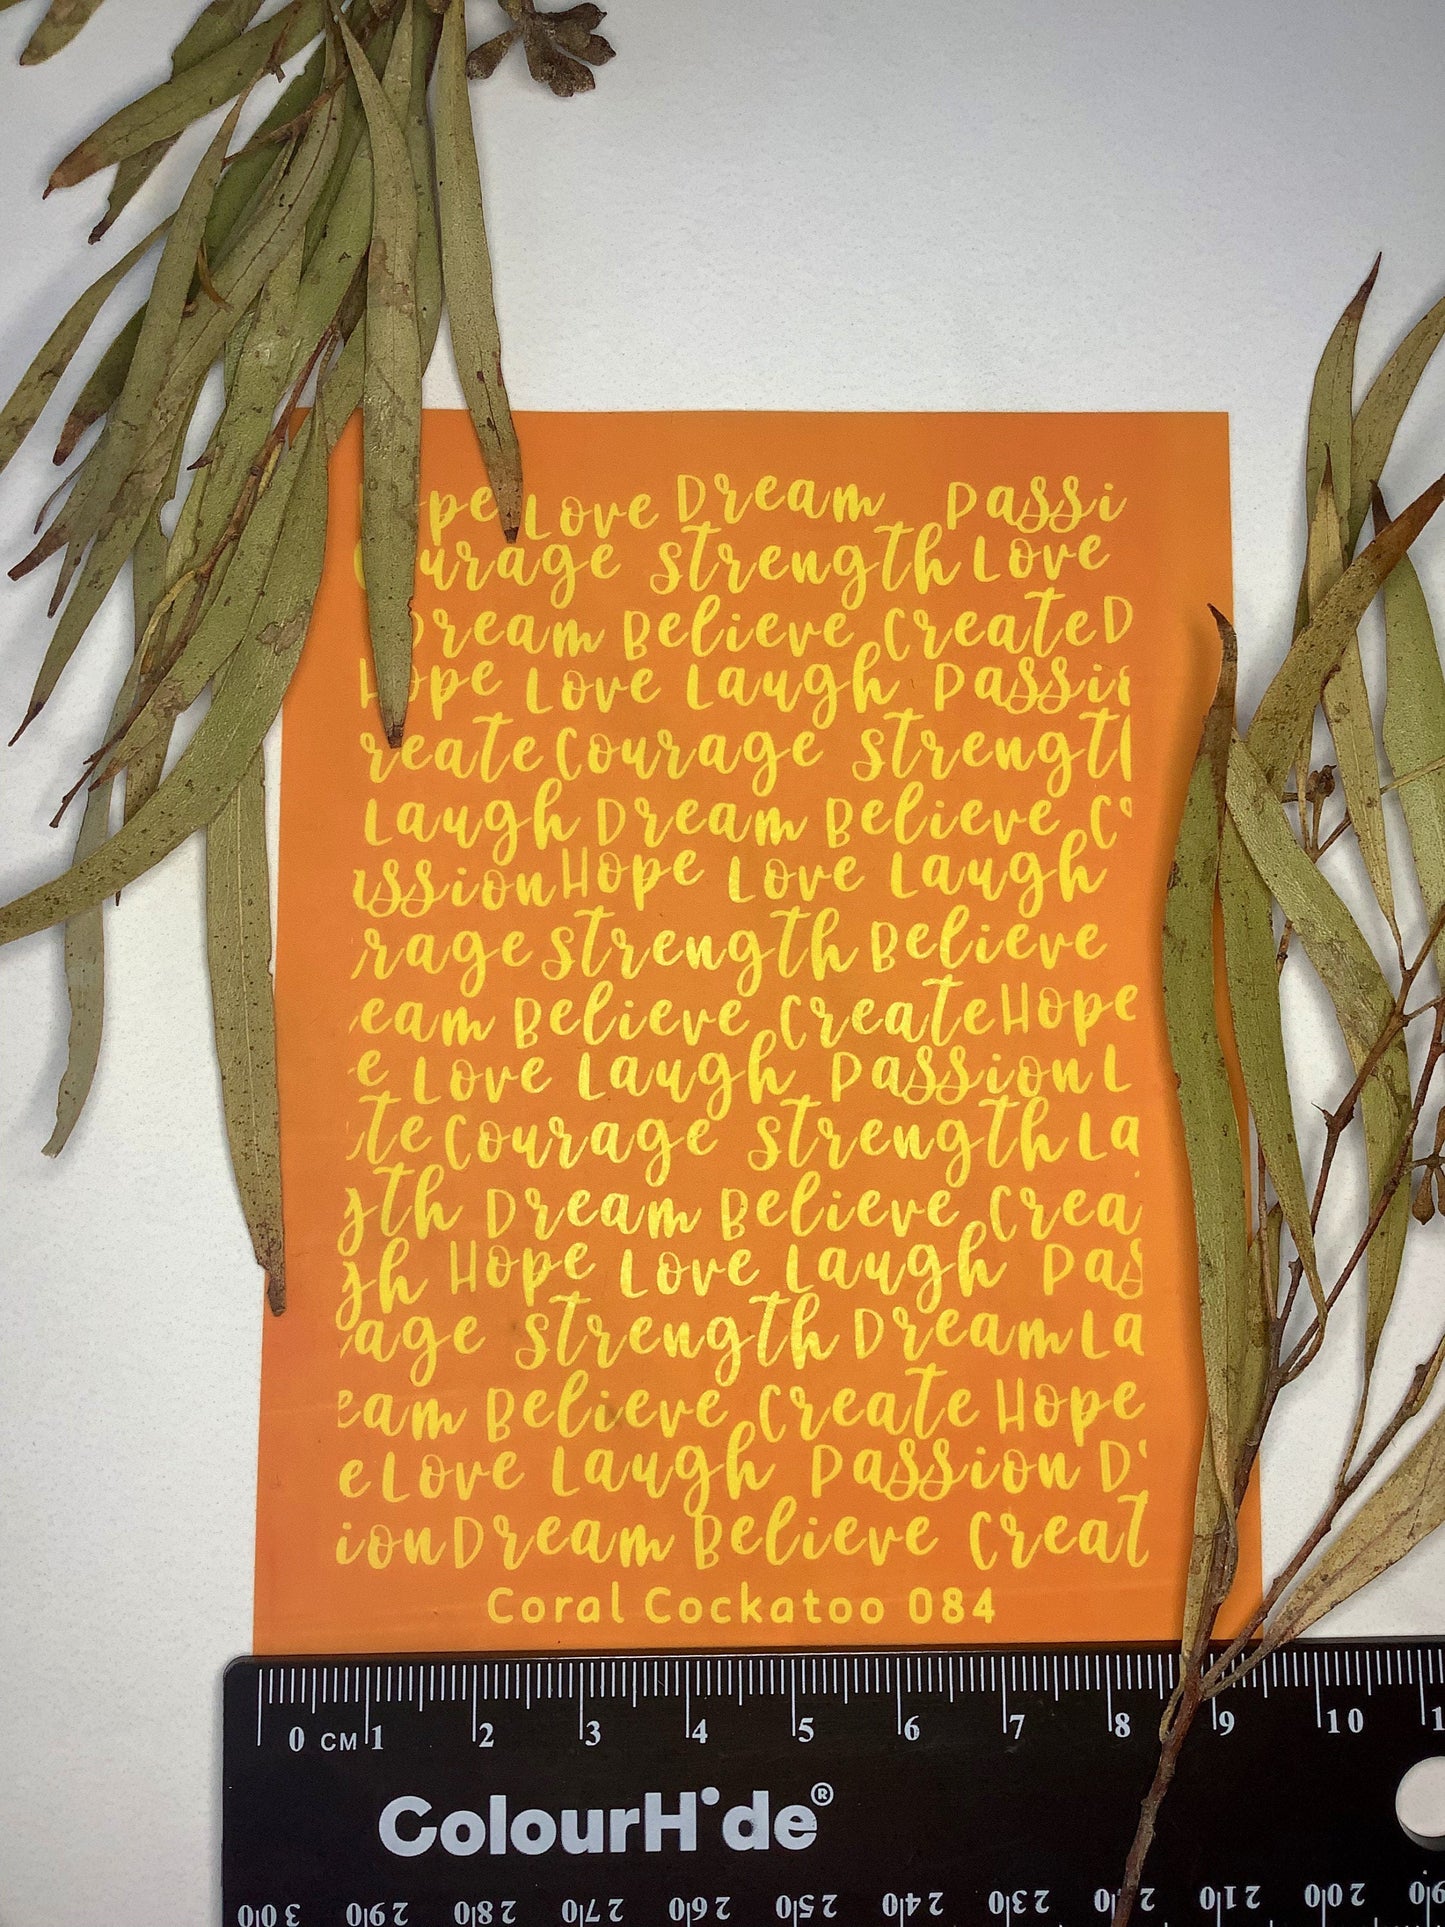 ope Love Dream Passi
ourage Strength Love
Dream Believe Create D
Hope Love Laugh Passi
reate Courage Strengt
Laugh Dream Believe C
ssion Hope Love Laugh
rage Strength Believe
eam Believe Create Hope
e Love Laugh Passion L
te Courage Strength La
gth Dream Believe Crea
gh Hope Love Laugh Pas
age Strength Dream La
eam Believe Create Hope
e Love Laugh Passion D
ion Dream Believe Creat
Coral Cockatoo 084
0 CM 1 2 3 4 5 6 7 8 9 10
ColourHide®
300 290 280 270 260 250 240 230 220 210 200